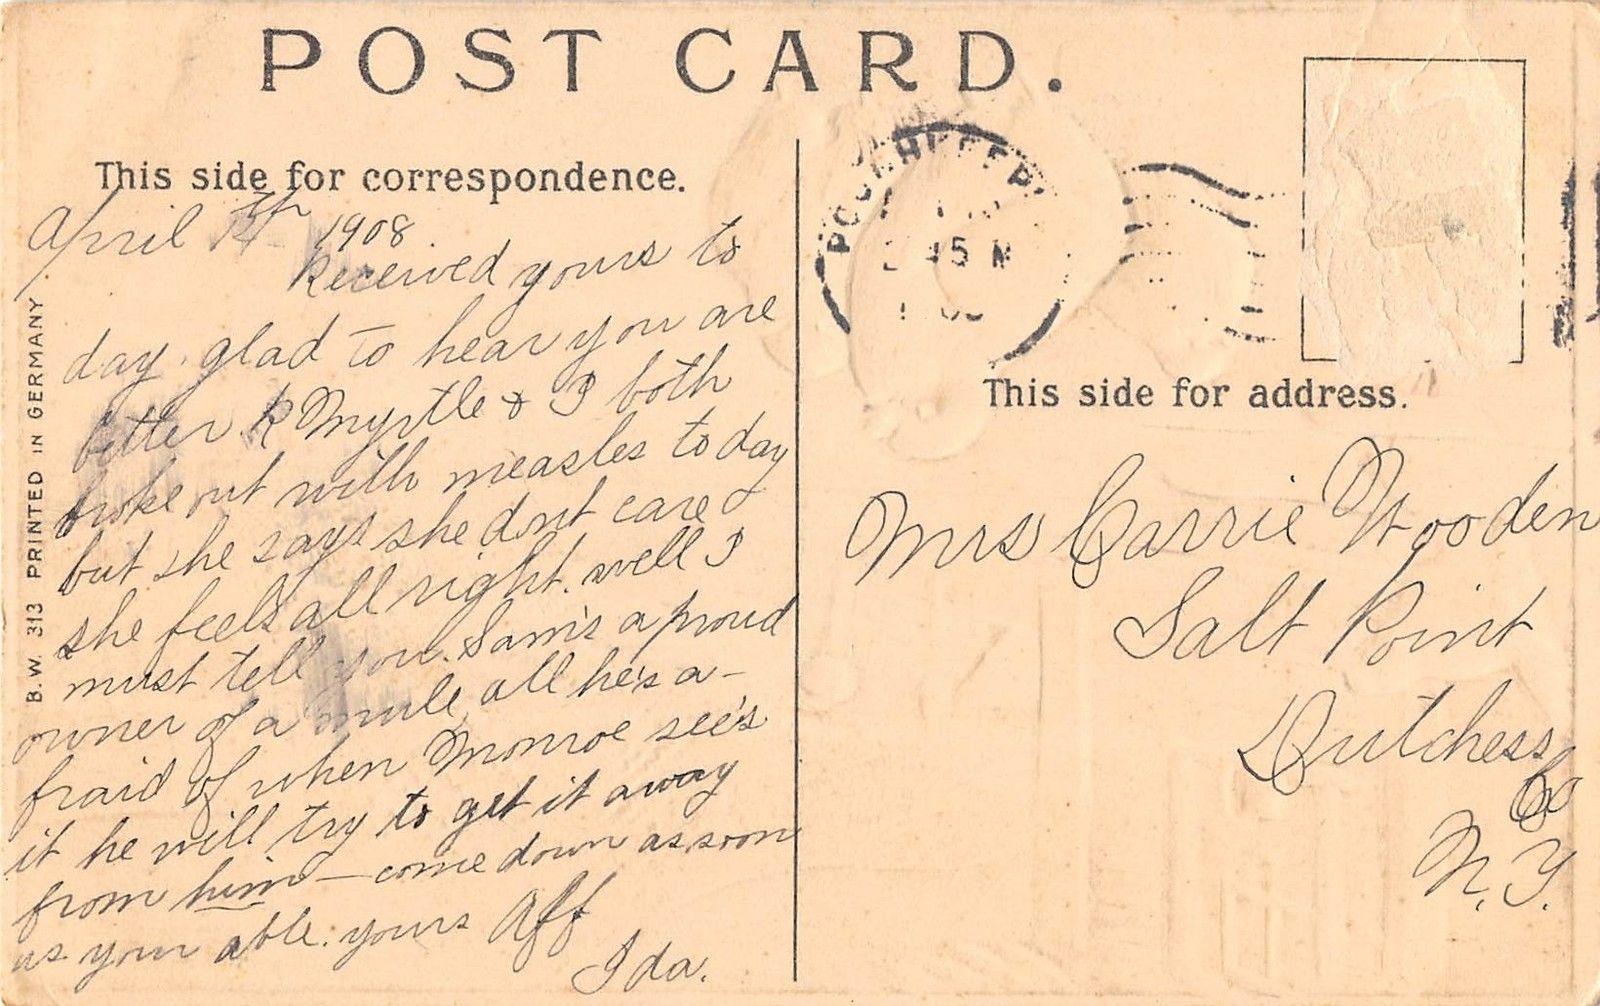 POST CARD.
This side for correspondence.
April 1908
Received yours to
day. glad to hear you are
better. R Myrtle & I both
broke out with measles to day
but she says she dont care
she feels all right. well I
must tell you. Sam's a proud
owner of a mule, all he's a-
fraid of when Monroe see's
it he will try to get it away
from him — come down as soon
as your able. yours Aff
Ida.
B.W. 313 PRINTED IN GERMANY
POUGHKEEP
45 M
This side for address.
Mrs Carrie Wooden
Salt Point
Dutchess
Co
N.Y.